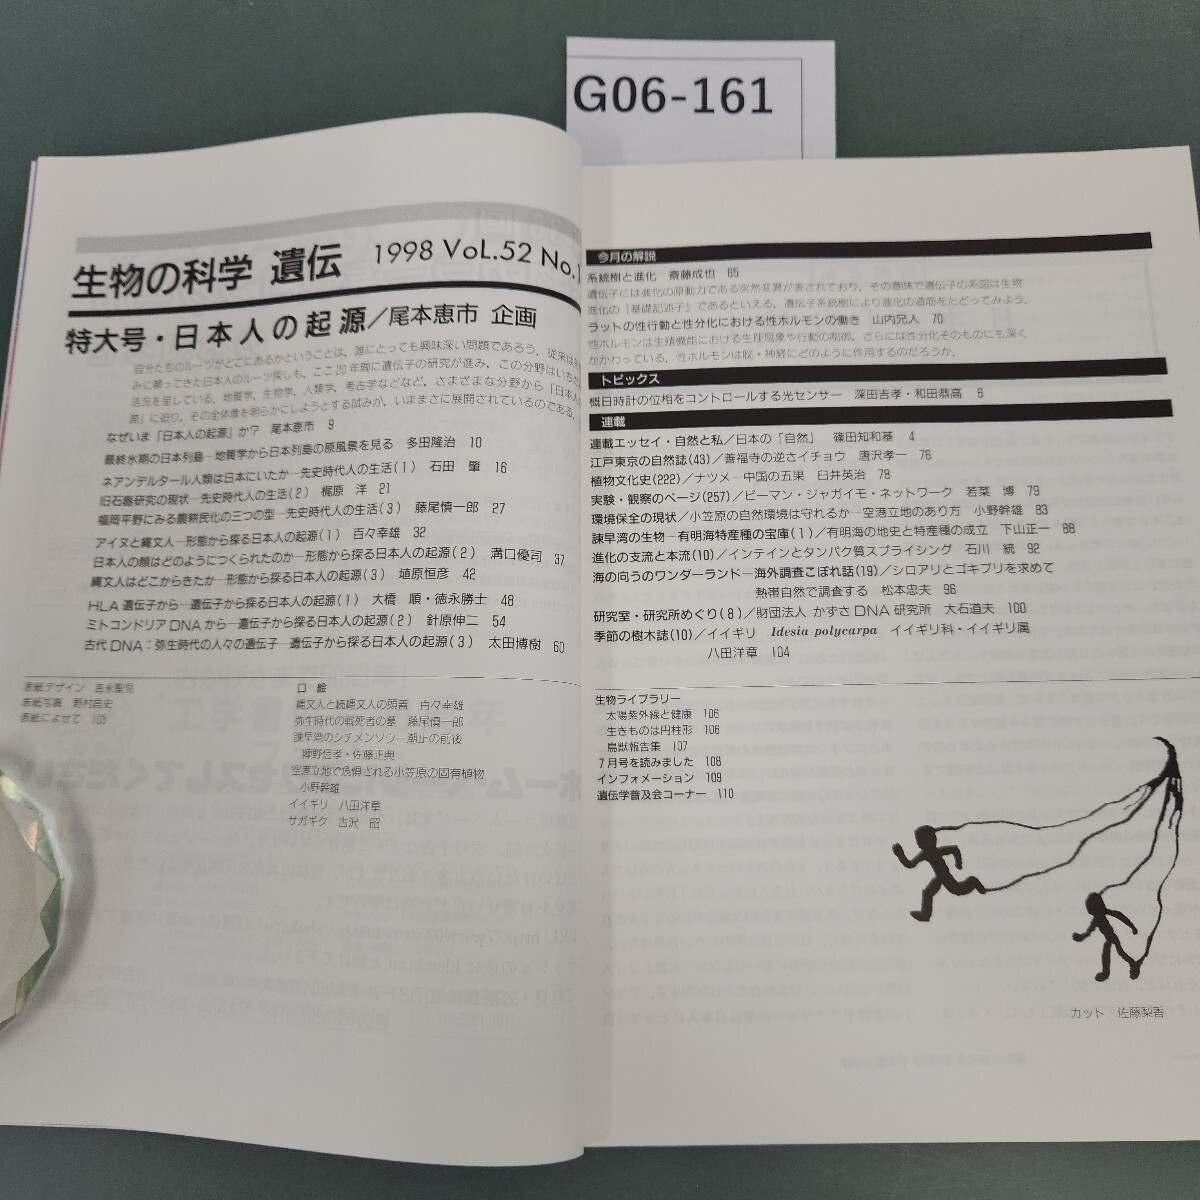 G06-161
生物の科学 遺伝 1998 VoL.52 No.
特大号・日本人の起源/尾本恵市 企画
自分たちのルーツがどこにあるかということは、誰にとっても興味深い問題であろう。従来は
みに頼ってきた日本人のルーツ探しも、ここ20年間に遺伝子の研究が進み、この分野はいちだ
活況を呈している。地質学、生物学、人類学、考古学などなど、さまざまな分野から「日本人の
源」に迫り、その全体像を明らかにしようとする試みが、いままさに展開されているのである。
なぜいま「日本人の起源」か? 尾本恵市 9
最終氷期の日本列島―地質学から日本列島の原風景を見る 多田隆治 10
ネアンデルタール人類は日本にいたか―先史時代人の生活(1) 石田 肇 16
旧石器研究の現状―先史時代人の生活(2) 梶原 洋 21
福岡平野にみる農耕民化の三つの型―先史時代人の生活(3) 藤尾慎一郎 27
アイヌと縄文人―形態から探る日本人の起源(1) 百々幸雄 32
日本人の顔はどのようにつくられたのか―形態から探る日本人の起源(2) 溝口優司 37
縄文人はどこからきたか―形態から探る日本人の起源(3) 埴原恒彦 42
HLA遺伝子から―遺伝子から探る日本人の起源(1) 大橋 順・徳永勝士 48
ミトコンドリアDNAから―遺伝子から探る日本人の起源(2) 針原伸二 54
古代DNA:弥生時代の人々の遺伝子―遺伝子から探る日本人の起源(3) 太田博樹 60
表紙デザイン 吉永聖児
表紙写真 野村昌史
表紙によせて 103
口 絵
縄文人と続縄文人の頭蓋 百々幸雄
弥生時代の戦死者の墓 藤尾慎一郎
諫早湾のシチメンソウ―潮止の前後
陣野信孝・佐藤正典
空港立地で危惧される小笠原の固有植物
小野幹雄
イイギリ 八田洋章
サガギク 古沢 昭
今月の解説
系統樹と進化 斎藤成也 65
遺伝子には進化の原動力である突然変異が表されており、その意味で遺伝子の系図は生物
進化の「基礎記述子」であるといえる。遺伝子系統樹により進化の道筋をたどってみよう。
ラットの性行動と性分化における性ホルモンの働き 山内兄人 70
性ホルモンは生殖機能における生理現象や行動の制御、さらには性分化そのものにも深く
かかわっている。性ホルモンは脳・神経にどのように作用するのだろうか。
トピックス
概日時計の位相をコントロールする光センサー 深田吉孝・和田恭高 6
連載
連載エッセイ・自然と私/日本の「自然」 篠田知和基 4
江戸東京の自然誌(43)/善福寺の逆さイチョウ 唐沢孝一 76
植物文化史(222)/ナツメ―中国の五果 臼井英治 78
実験・観察のページ(257)/ピーマン・ジャガイモ・ネットワーク 若菜 博 79
環境保全の現状/小笠原の自然環境は守れるか―空港立地のあり方 小野幹雄 83
諫早湾の生物―有明海特産種の宝庫(1)/有明海の地史と特産種の成立 下山正一 88
進化の支流と本流(10)/インテインとタンパク質スプライシング 石川 統 92
海の向うのワンダーランド―海外調査こぼれ話(19)/シロアリとゴキブリを求めて
熱帯自然で調査する 松本忠夫 96
研究室・研究所めぐり(8)/財団法人 かずさDNA研究所 大石道夫 100
季節の樹木誌(10)/イイギリ Idesia polycarpa イイギリ科・イイギリ属
八田洋章 104
生物ライブラリー
太陽紫外線と健康 106
生きものは円柱形 106
鳥獣報告集 107
7月号を読みました 108
インフォメーション 109
遺伝学普及会コーナー 110
カット 佐藤梨香